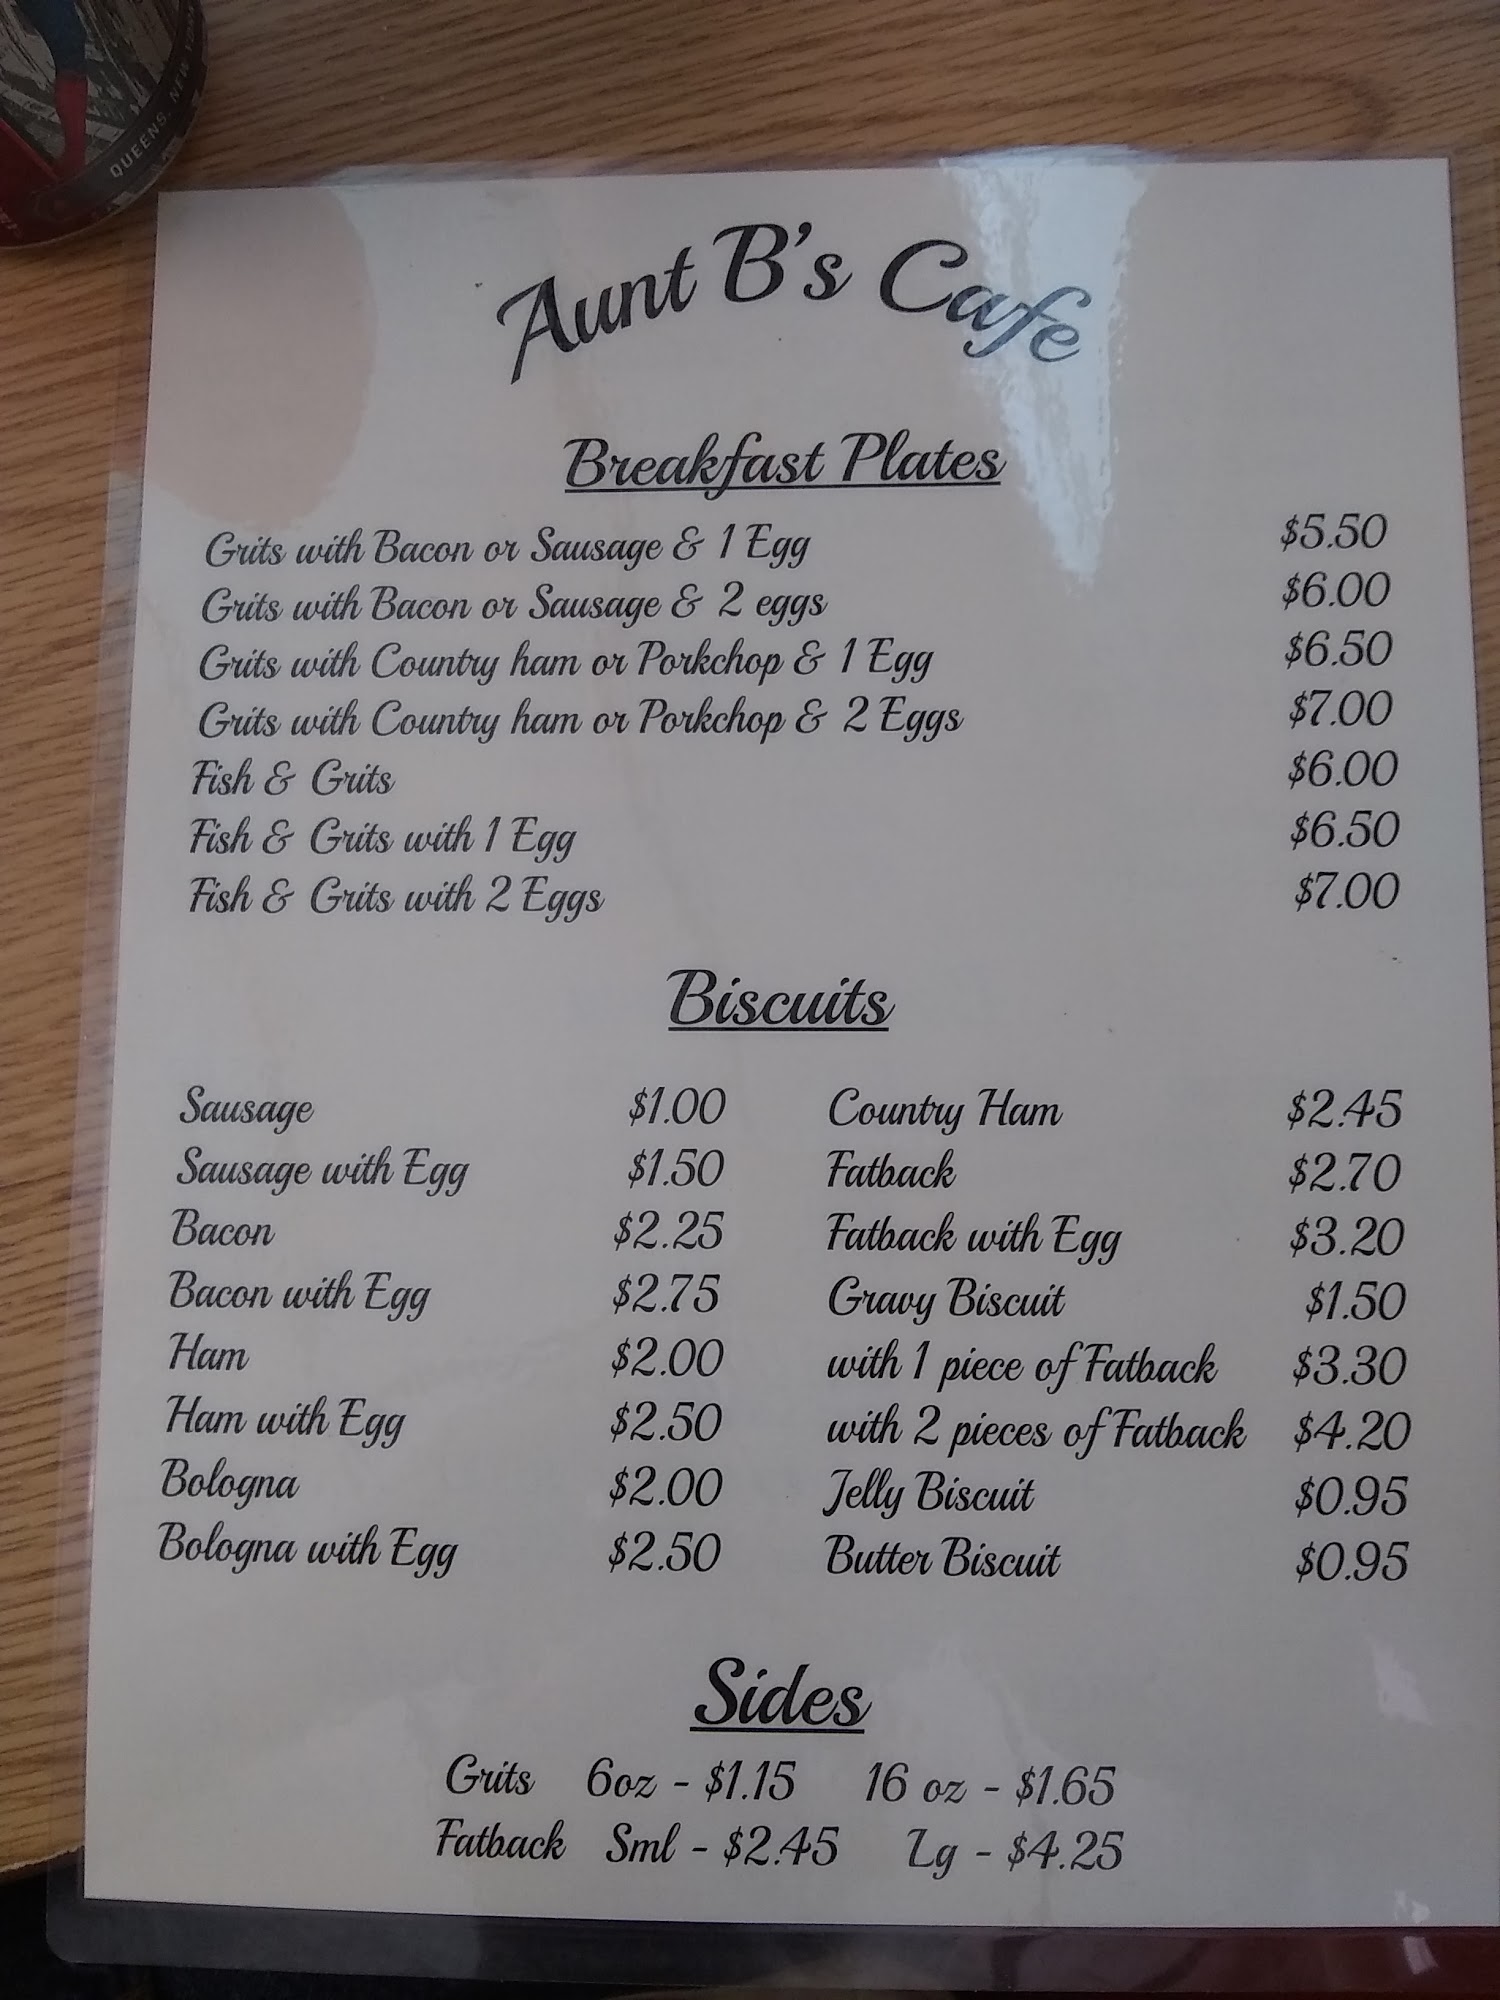 QUEENS, NEW
Aunt B's Cafe
Breakfast Plates
Grits with Bacon or Sausage & 1 Egg $5.50
Grits with Bacon or Sausage & 2 eggs $6.00
Grits with Country ham or Porkchop & 1 Egg $6.50
Grits with Country ham or Porkchop & 2 Eggs $7.00
Fish & Grits $6.00
Fish & Grits with 1 Egg $6.50
Fish & Grits with 2 Eggs $7.00
Biscuits
Sausage $1.00
Sausage with Egg $1.50
Bacon $2.25
Bacon with Egg $2.75
Ham $2.00
Ham with Egg $2.50
Bologna $2.00
Bologna with Egg $2.50
Country Ham $2.45
Fatback $2.70
Fatback with Egg $3.20
Gravy Biscuit $1.50
with 1 piece of Fatback $3.30
with 2 pieces of Fatback $4.20
Jelly Biscuit $0.95
Butter Biscuit $0.95
Sides
Grits 6oz - $1.15 16 oz - $1.65
Fatback Sml - $2.45 Lg - $4.25